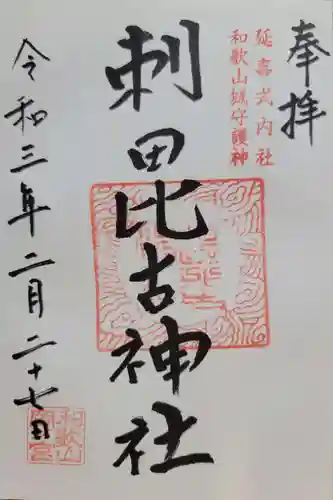 奉拝
延喜式内社
和歌山城守護神
刺田毘古神社
令和三年二月二十七日